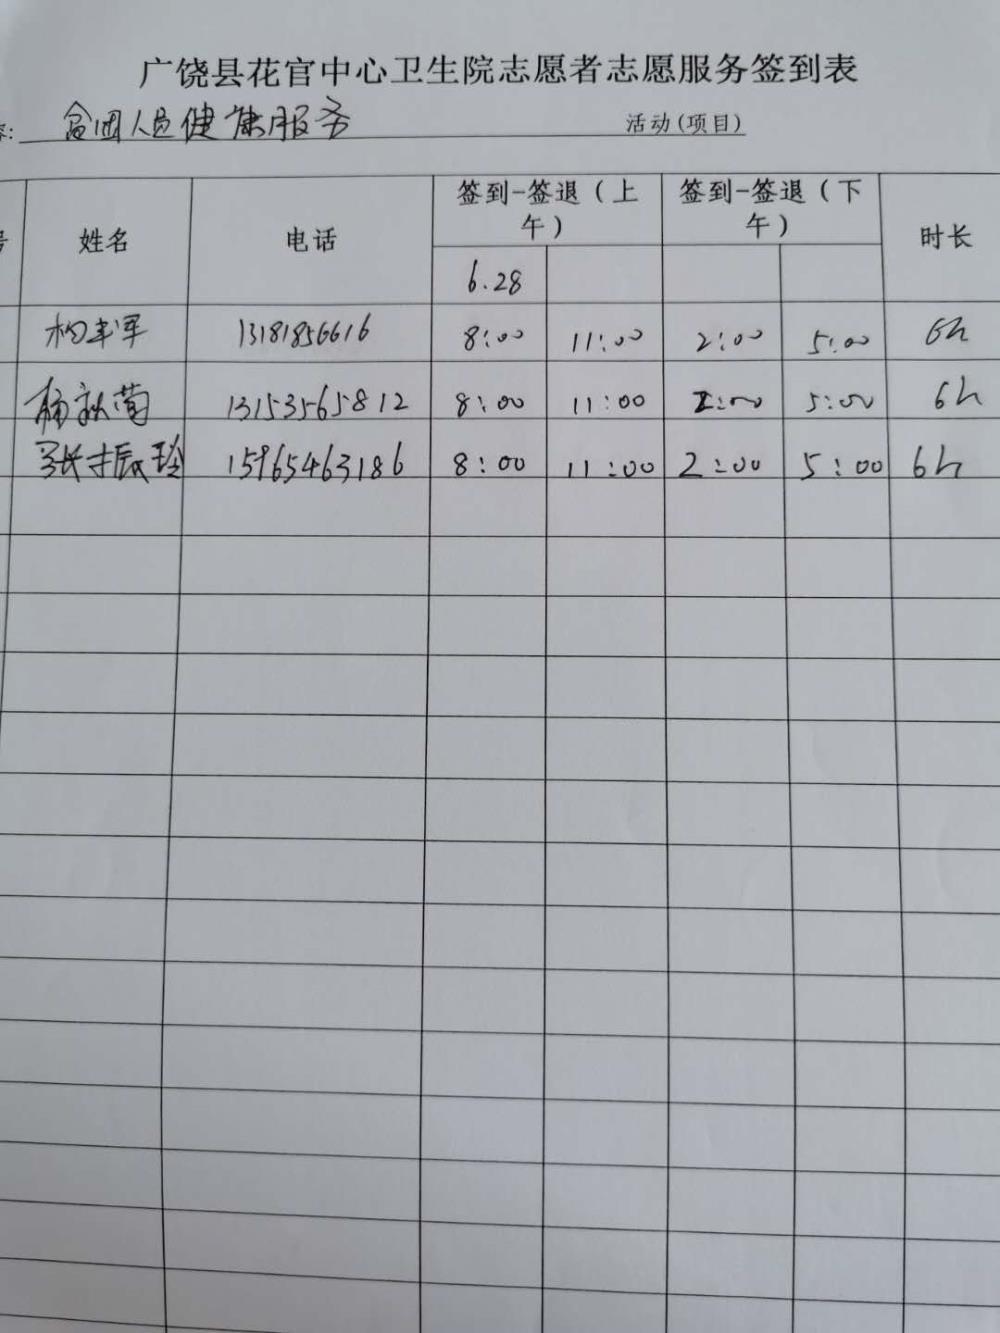 广饶县花官中心卫生院志愿者志愿服务签到表
容: 贫困人员健康服务 活动(项目)
号 姓名 电话 签到-签退（上午） 签到-签退（下午） 时长
6.28
13181856616 8:00 11:00 2:00 5:00 6h
杨秋菊 13153565812 8:00 11:00 2:00 5:00 6h
张振玲 15965463186 8:00 11:00 2:00 5:00 6h